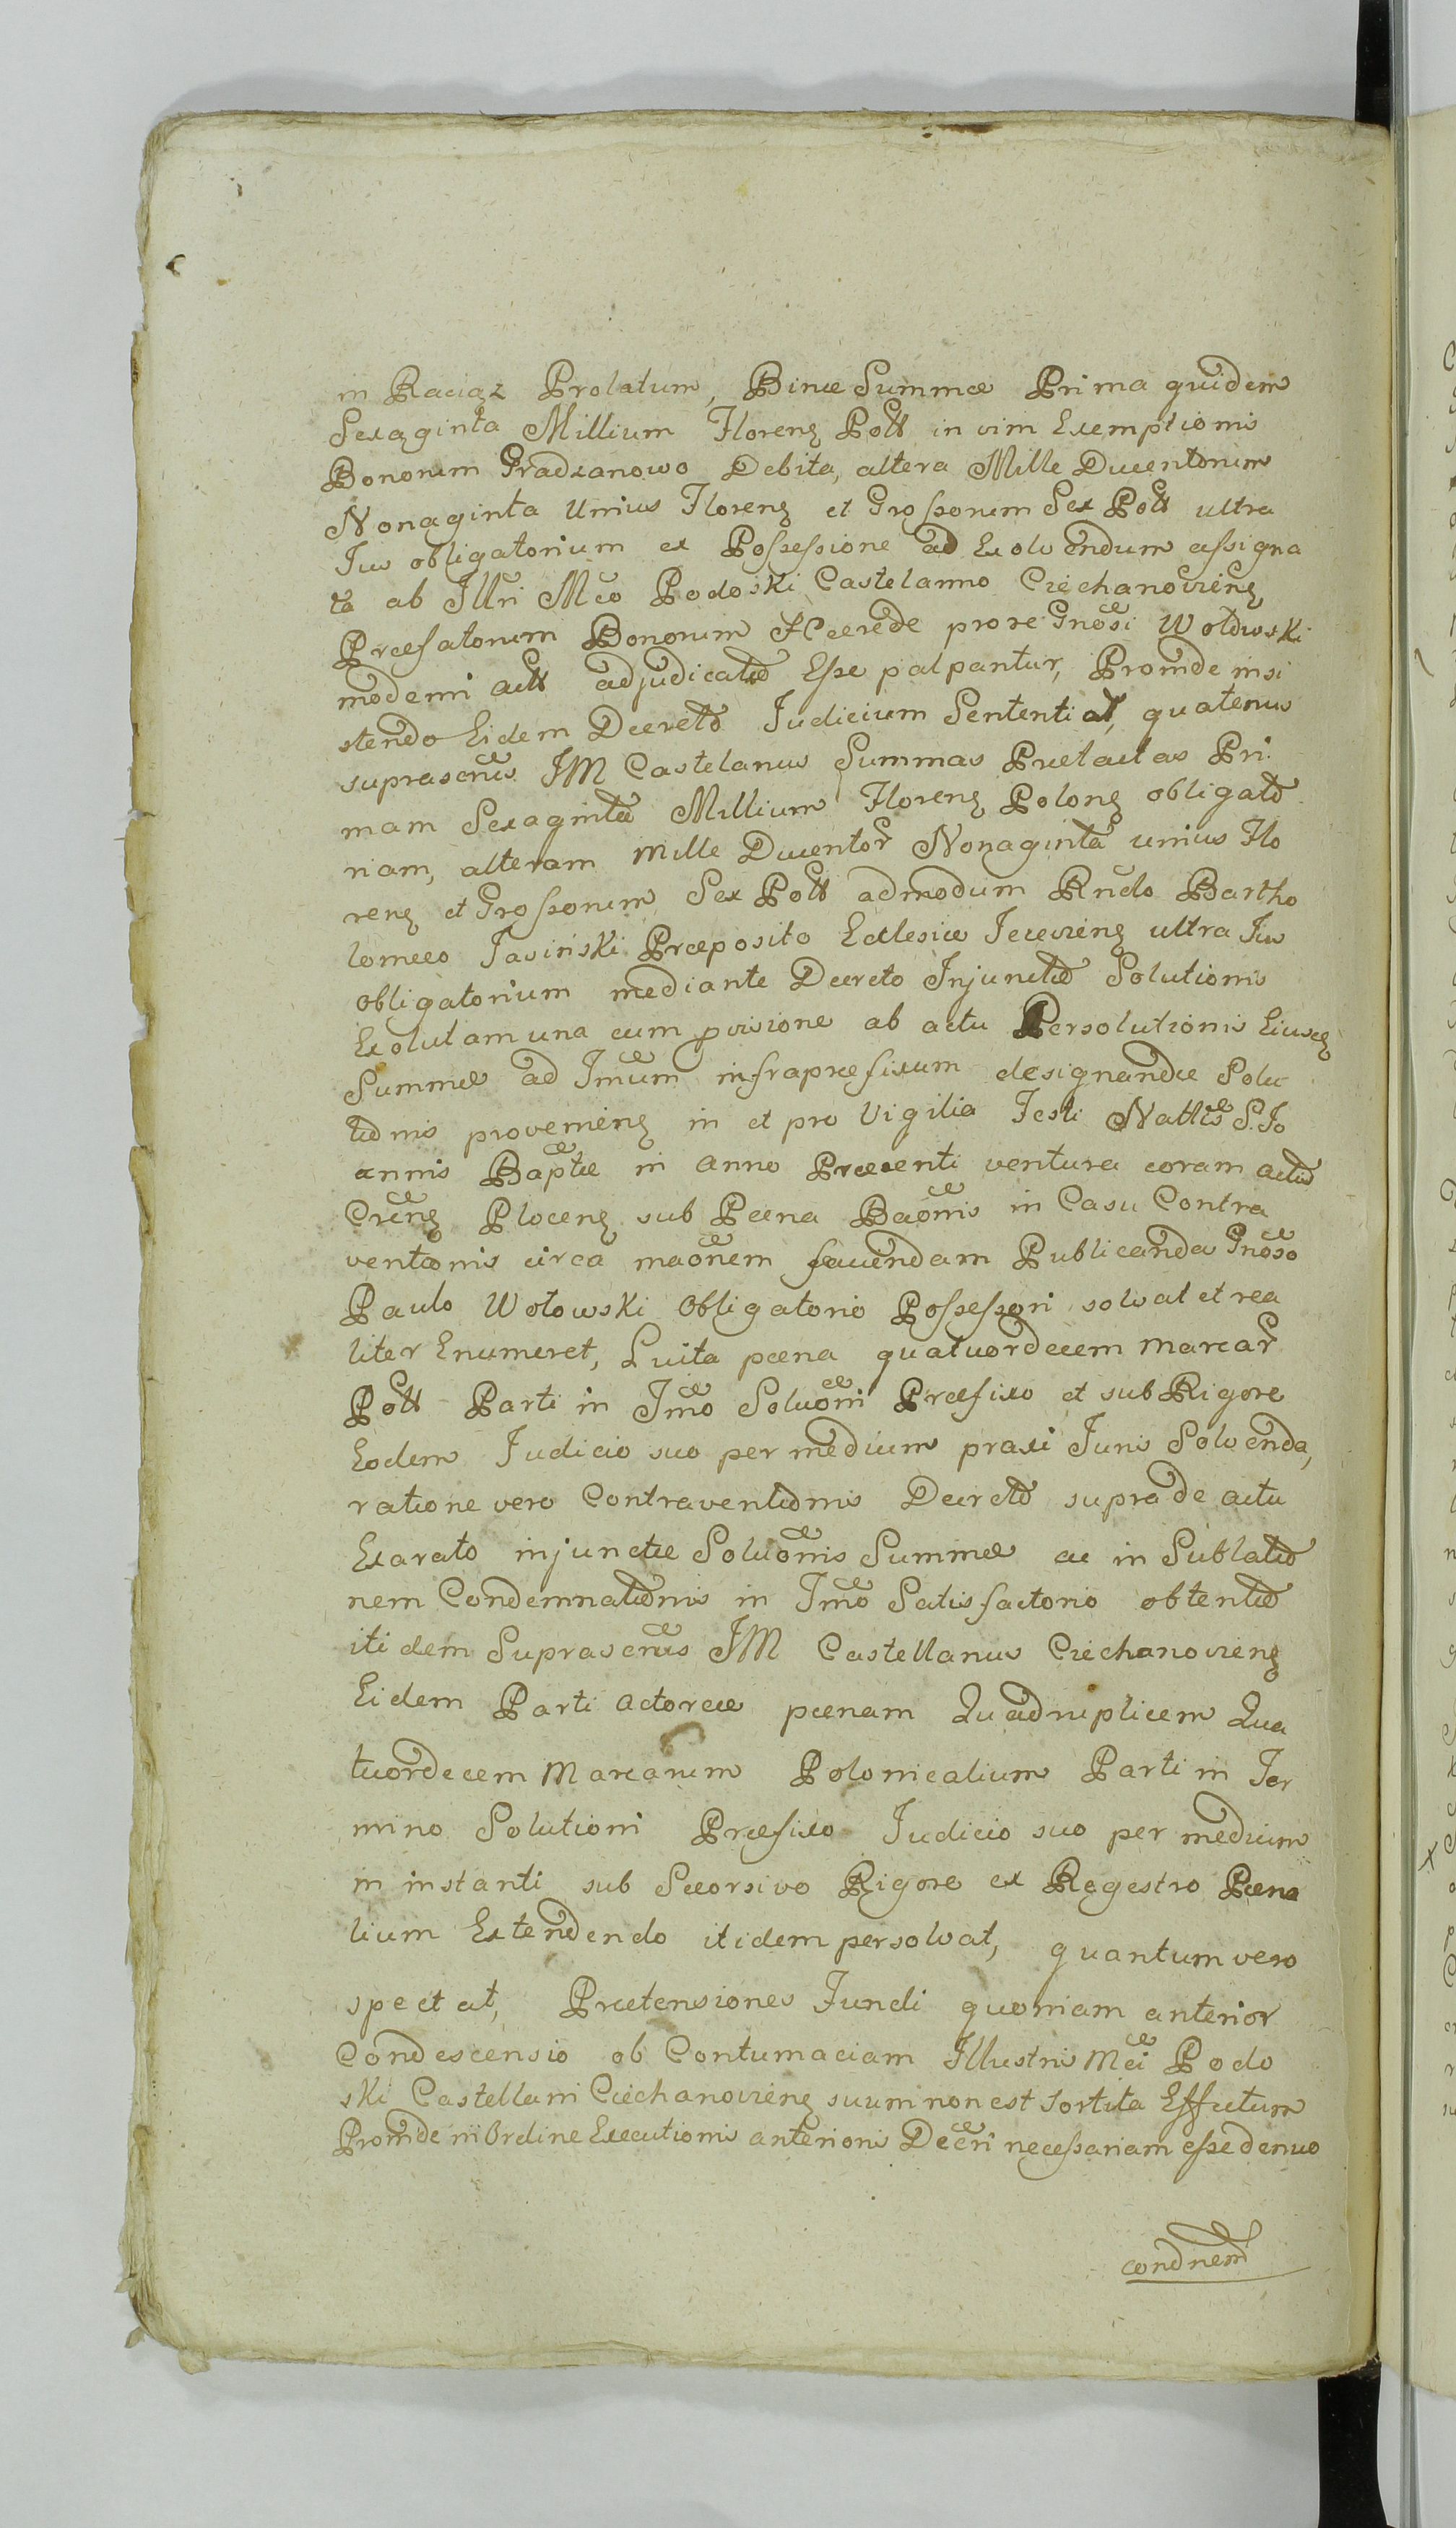 in Raciąz Prolatum, Binæ Summæ Prima quidem
Sexaginta Millium Floreng Poll in vim Exemptionis
Bonorum Gradzanowo Debita, altera Mille Ducentorum
Nonaginta Unius Floreng et Grossorum Sex Poll ultra
Jus obligatorium ex Possessione ad Exolvendum assigna
ta ab Illri Mco Podoski Castelanno Ciechanovieng
Præfatorum Bonorum Hærede pro re Gnosi Wołowski
moderni actt adjudicatæ Esse palpantur, Proinde insi
stendo Eidem Decreto Judicium Sententiat, quatenus
suprascrus JM Castelanus Summas Prætactas Pri
mam Sexaginta Millium Floreng Polong obligato
riam, alteram Mille Ducentor Nonaginta unius Flo
reng et Grossorum Sex Poll admodum Rndo Bartho
lomeo Jasinski Præposito Ecclesiæ Jeżevieng ultra Jus
obligatorium mediante Decreto Injunctæ Solutionis
Exolutam una cum pvisione ab actu Persolutionis Eiusdg
Summæ ad Tmum infrapræfixum designandæ Solu
tionis provenieng in et pro Vigilia Festi Nattis S. Jo
annis Baptæ in Anno Præsenti ventura coram actis
Crceng Ploceng sub Pæna Baonis in Casu Contra
ventionis circa maonem faciendam Publicanda Gnoso
Paulo Wołowski Obligatorio Possessori solvat et rea
liter Enumeret, Luita pæna quatuordecem Marcar
Poll Parti in Tmo Soluoni Præfixo et sub Rigore
Eodem Judicio suo per medium praxi Juris Solvenda,
ratione vero Contraventionis Decreto supra de actu
Exarato injunctæ Soluonis Summæ ac in Sublatio
nem Condemnationis in Tmo Satisfactorio obtentæ
itidem Suprascrus JM Castellanus Ciechanovieng
Eidem Parti Actoreæ pænam Quadruplicem Qua
tuordecem Marcarum Polonicalium Parti in Ter
mino Solutioni Præfixo Judicio suo per medium
in instanti sub Seorsivo Rigore ex Regestro Pæna
lium Extendendo itidem persolvat, quantum vero
spectat, Prætensiones Fundi quoniam anterior
Condescensio ob Contumaciam Illustris Mci Podo
ski Castellani Ciechanovieng suum non est sortita Effectum
Proinde in Ordine Executionis anterioris Decri necessariam esse denuo
condnem